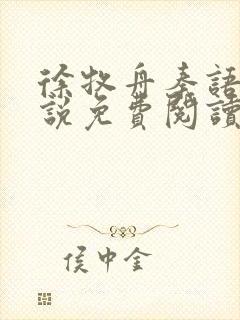 徐牧舟秦語
說免費閱讀
侯中金